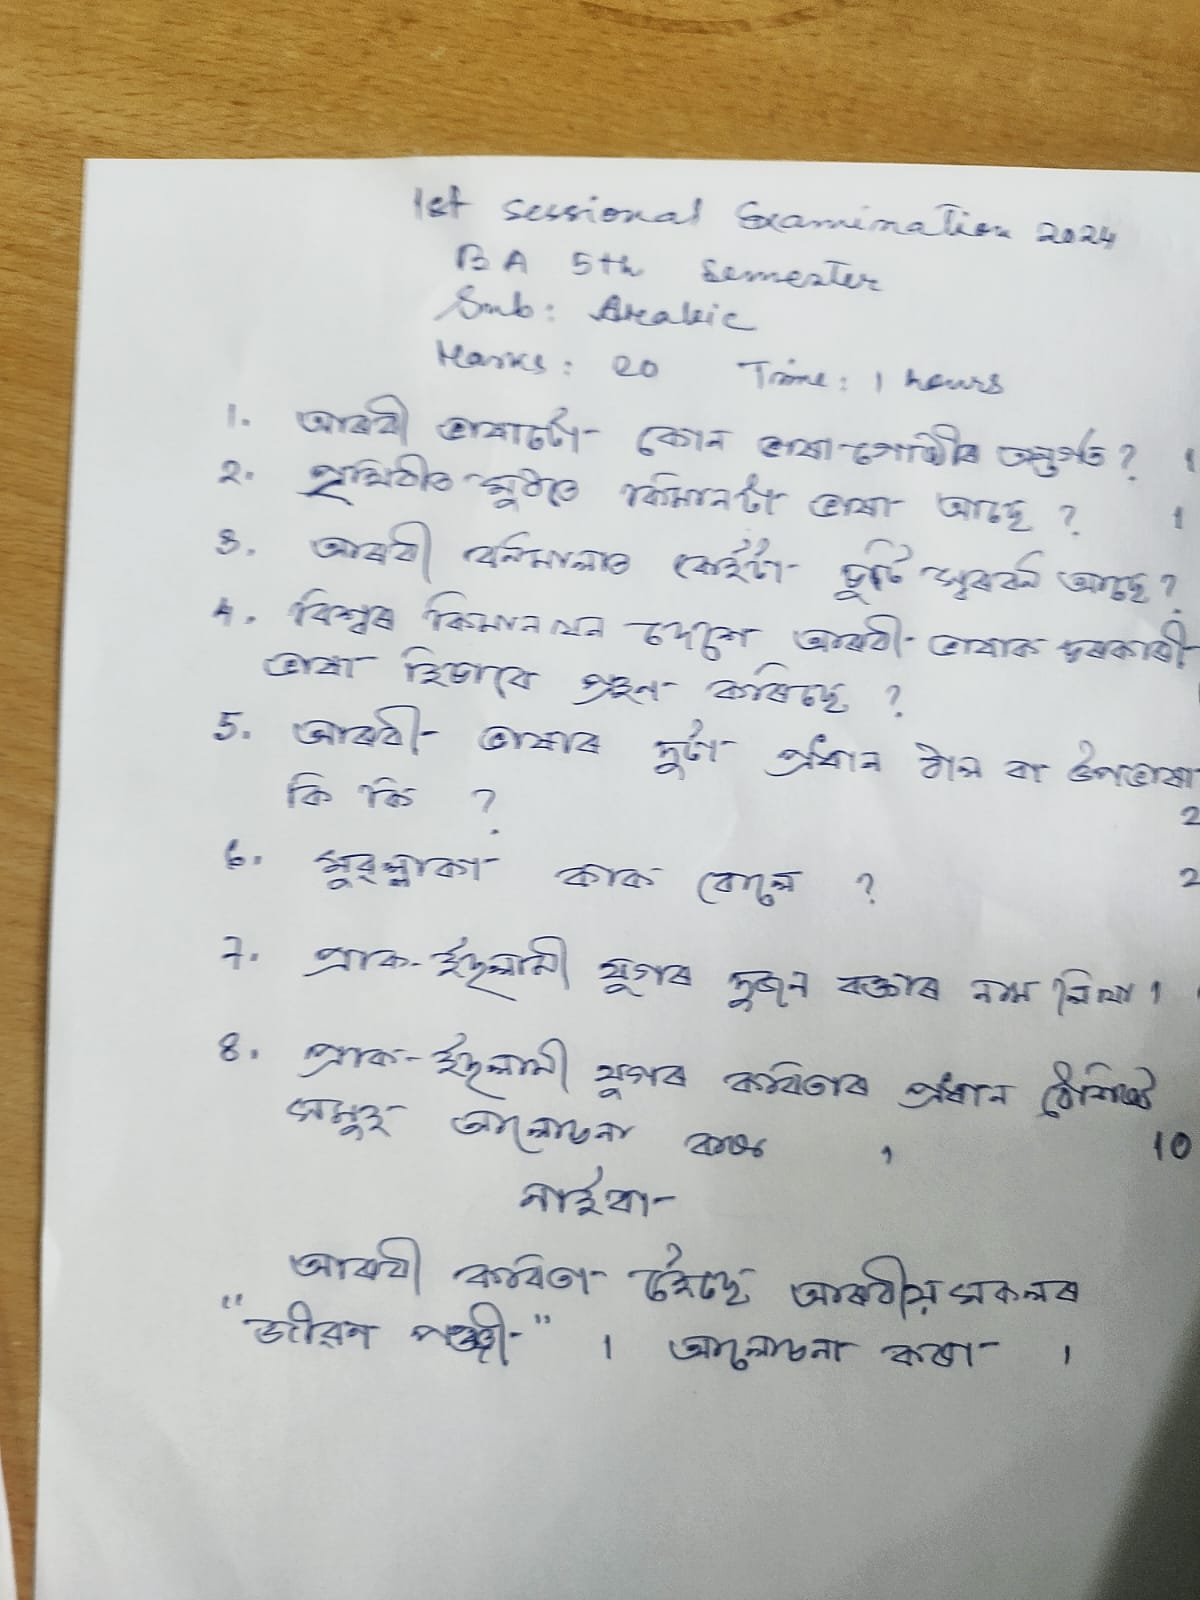 1st Sessional Examination 2024
BA 5th Semester
Sub: Arabic
Marks: 20 Time: 1 hours
1. আৰবী ভাষাটো কোন ভাষা-গোষ্ঠীৰ অন্তৰ্গত? 1
2. পৃথিৱীত মুঠতে কিমানটা ভাষা আছে? 1
3. আৰবী বৰ্নমালাত কেইটা চুটি স্বৰবৰ্ন আছে?
4. বিশ্বৰ কিমানখন দেশে আৰবী ভাষাক চৰকাৰী
ভাষা হিচাবে গ্ৰহন কৰিছে?
5. আৰবী ভাষাৰ দুটা প্ৰধান ঠাল বা উপভাষা
কি কি? 2
6. কাক বোলে? 2
7. প্ৰাক-ইছলামী যুগৰ দুজন বক্তাৰ নাম লিখা।
8. প্ৰাক-ইছলামী যুগৰ কবিতাৰ প্ৰধান বৈশিষ্ট্য
সমুহ আলোচনা কৰা । 10
নাইবা
আৰবী কবিতা হৈছে আৰবীয় সকলৰ
"জীৱন পঞ্জী" । আলোচনা কৰা ।